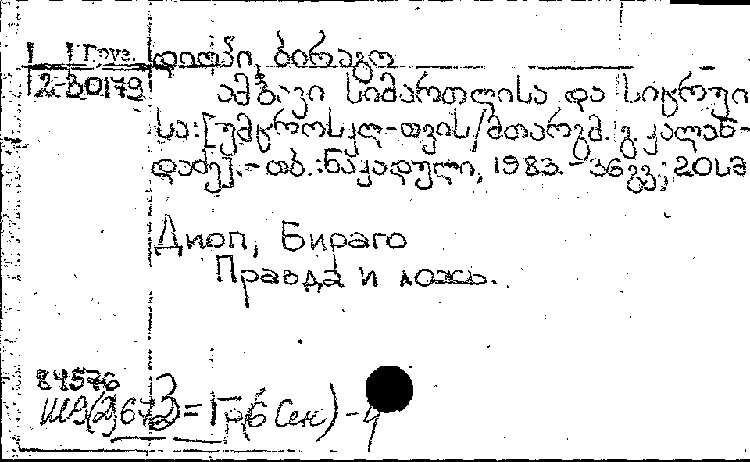 Груз. დიოპი, ბირაგო
2-30179 ამბავი სიმართლისა და სიცრუი
სა: [უმცროსკლ-თვის/მთარგმ. გ. კალან-
დაძე].-თბ.: ნაკადული, 1983.-36გვ; 20სმ
Диоп, Бираго
Правда и ложь.
84576
Ш9(2)673=Гр(6 Сен)-4